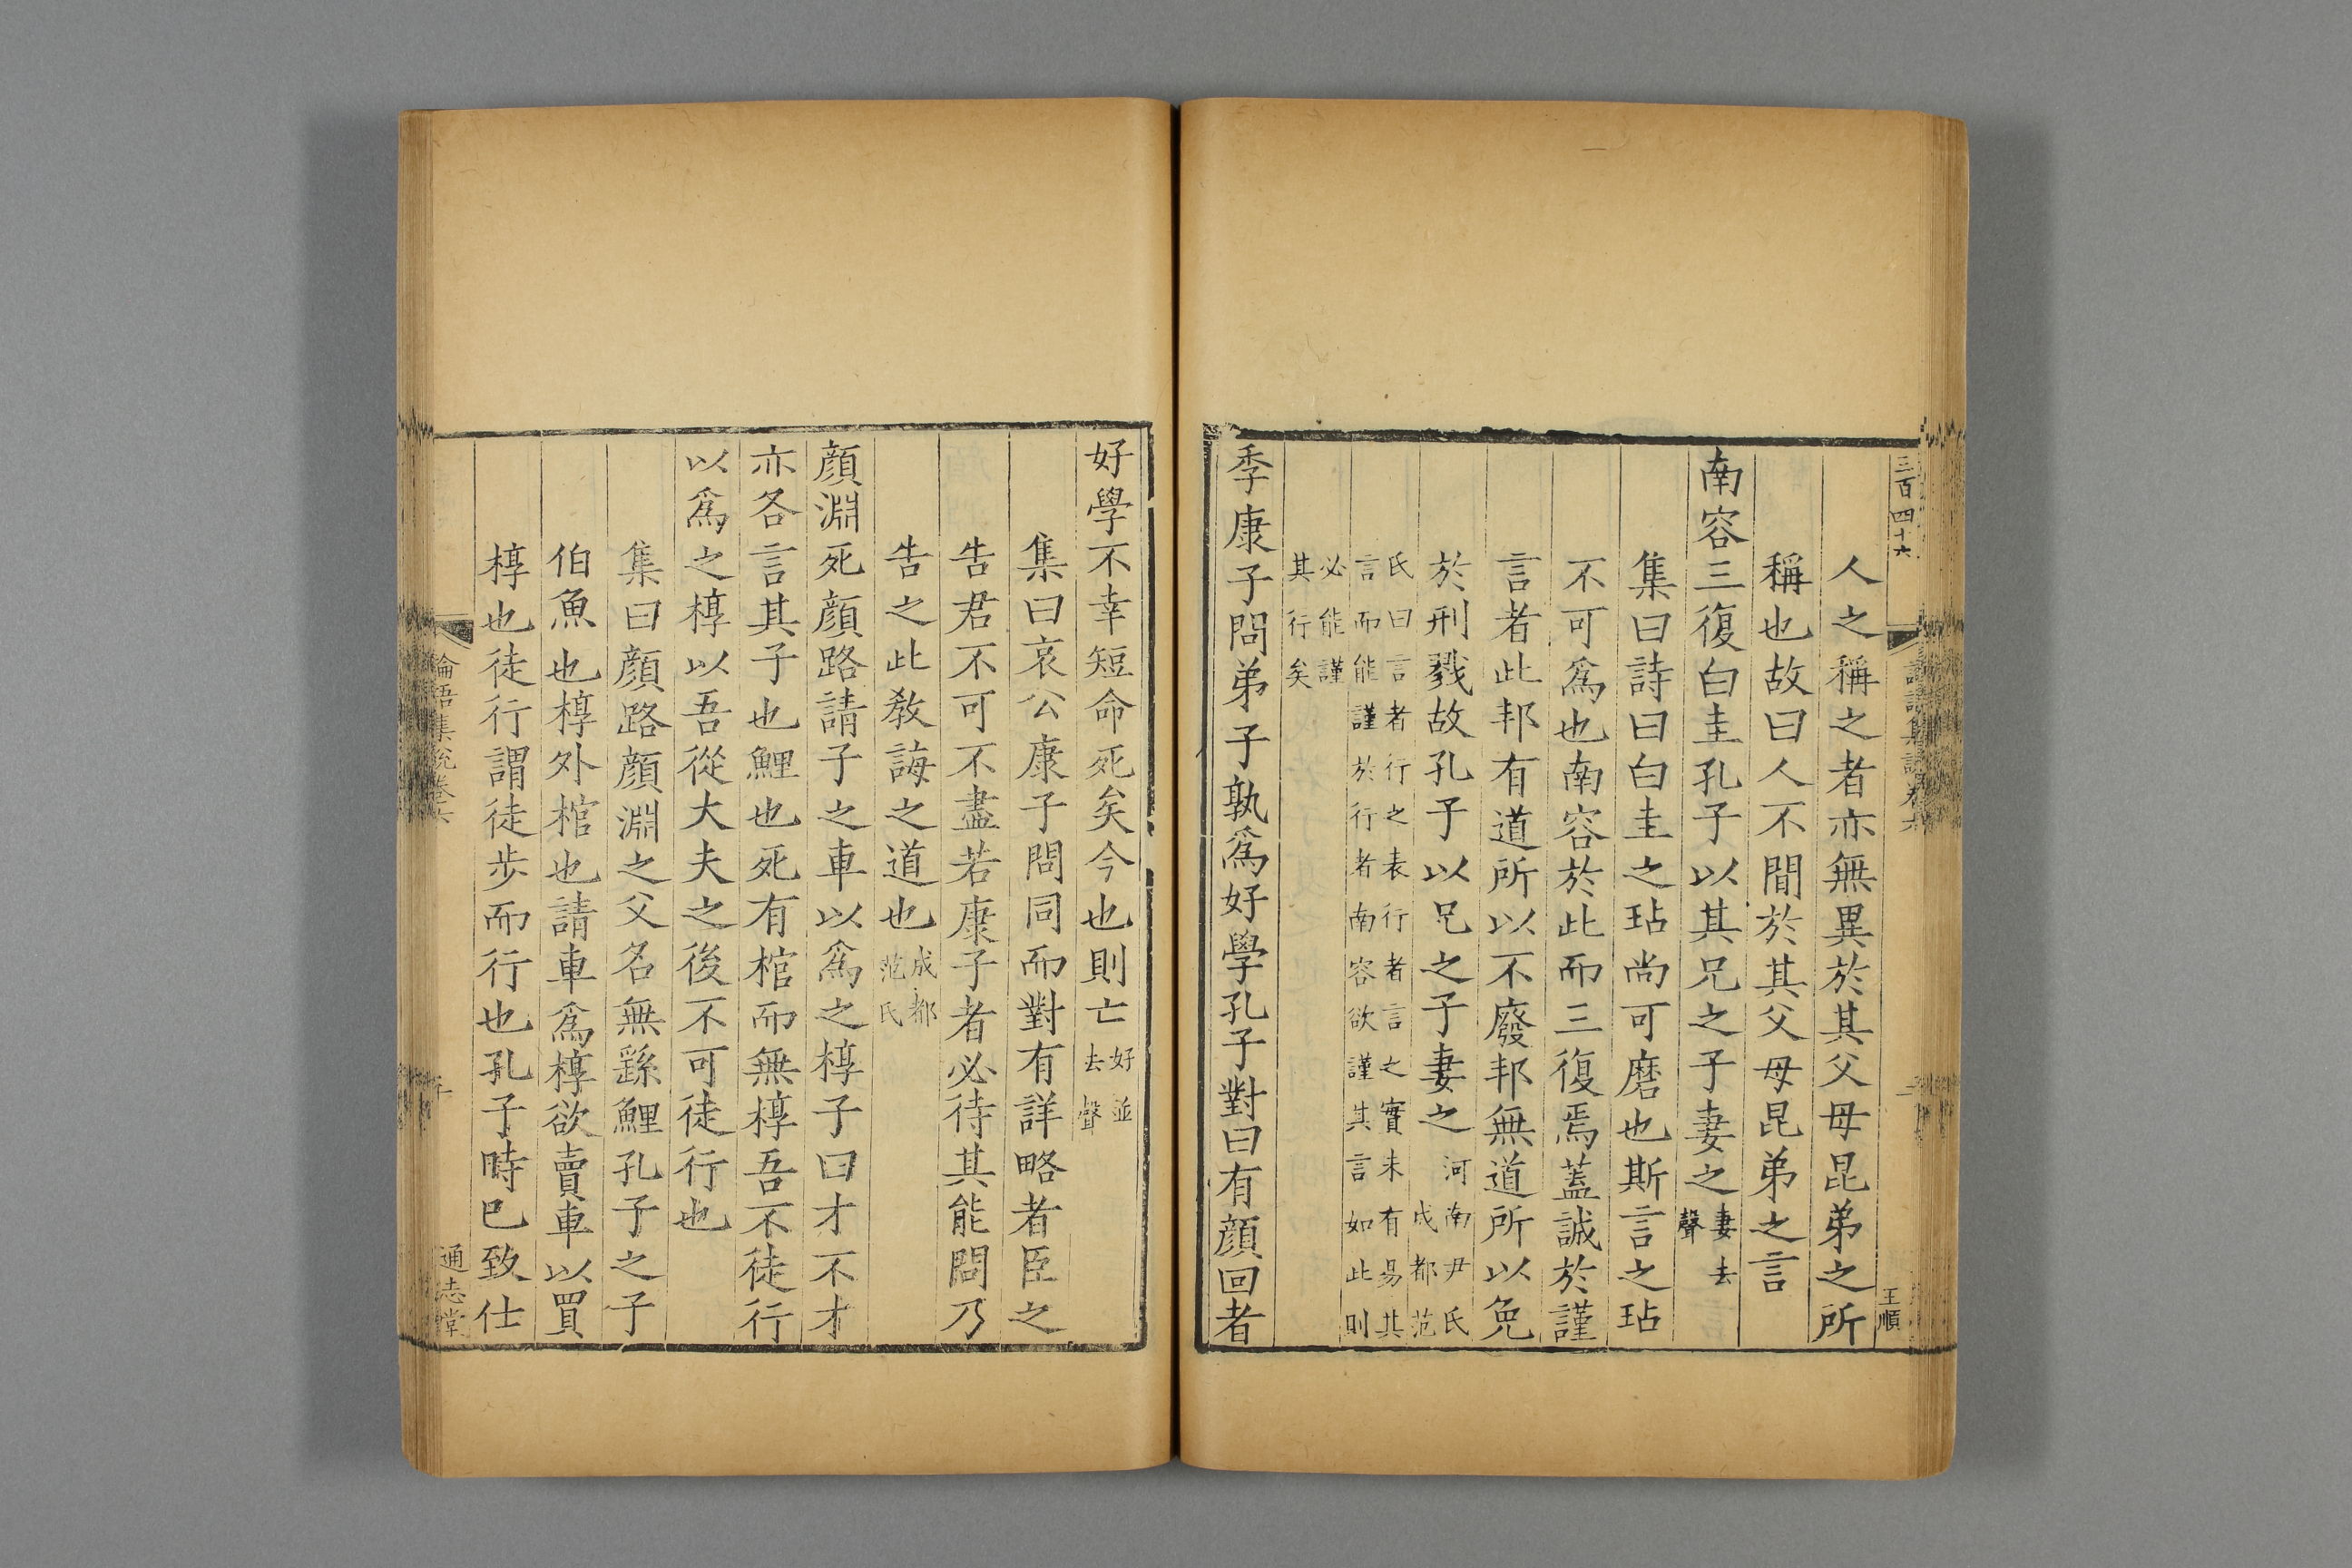 三百四十六
王順
人之稱之者亦無異於其父母昆弟之所
稱也故曰人不間於其父母昆弟之言
南容三復白圭孔子以其兄之子妻之妻去聲
集曰詩曰白圭之玷尚可磨也斯言之玷
不可爲也南容於此而三復焉蓋誠於謹
言者此邦有道所以不廢邦無道所以免
於刑戮故孔子以兄之子妻之河南尹氏成都范
氏曰言者行之表行者言之實未有易其
言而能謹於行者南容欲謹其言如此則
必能謹
其行矣
季康子問弟子孰爲好學孔子對曰有顏回者
好學不幸短命死矣今也則亡好並去聲
集曰哀公康子問同而對有詳略者臣之
告君不可不盡若康子者必待其能問乃
告之此教誨之道也成都范氏
顏淵死顏路請子之車以爲之椁子曰才不才
亦各言其子也鯉也死有棺而無椁吾不徒行
以爲之椁以吾從大夫之後不可徒行也
集曰顏路顏淵之父名無繇鯉孔子之子
伯魚也椁外棺也請車爲椁欲賣車以買
椁也徒行謂徒步而行也孔子時已致仕
論語集說卷六
通志堂